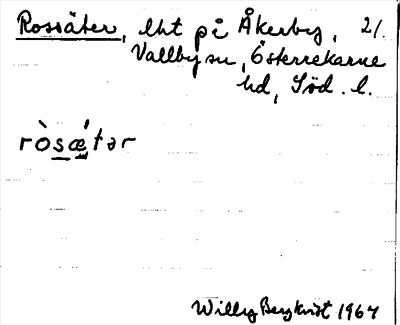 Rossäter, lht på Åkerby, 21.
Vallby sn, Österrekarne
hd, Söd. l.
ròsǽtər
Willy Bergkvist 1964